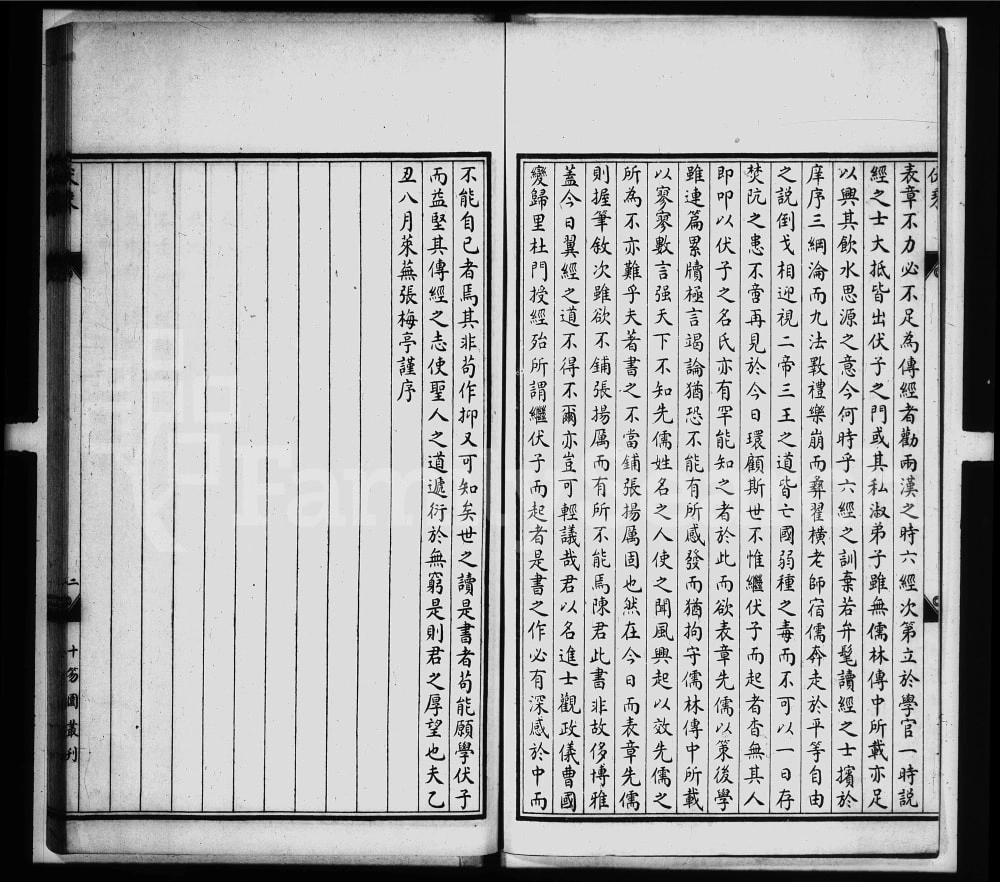 表章不力必不足為傳經者勸兩漢之時六經次第立於學官一時說
經之士大抵皆出伏子之門或其私淑弟子雖無儒林傳中所載亦足
以興其飲水思源之意今何時乎六經之訓棄若弁髦讀經之士擯於
庠序三綱淪而九法斁禮樂崩而彞翟橫老師宿儒奔走於平等自由
之說倒戈相迎視二帝三王之道皆亡國弱種之毒而不可以一日存
焚阬之患不啻再見於今日環顧斯世不惟繼伏子而起者杳無其人
即叩以伏子之名氏亦有罕能知之者於此而欲表章先儒以策後學
雖連篇累牘極言竭論猶恐不能有所感發而猶拘守儒林傳中所載
以寥寥數言强天下不知先儒姓名之人使之聞風興起以效先儒之
所為不亦難乎夫著書之不當鋪張揚厲固也然在今日而表章先儒
則握筆敘次雖欲不鋪張揚厲而有所不能焉陳君此書非故侈博雅
蓋今日翼經之道不得不爾亦豈可輕議哉君以名進士觀政儀曹國
變歸里杜門授經殆所謂繼伏子而起者是書之作必有深感於中而
不能自已者焉其非苟作抑又可知矣世之讀是書者苟能願學伏子
而益堅其傳經之志使聖人之道遞衍於無窮是則君之厚望也夫乙
丑八月萊蕪張梅亭謹序
二
十笏園叢刊